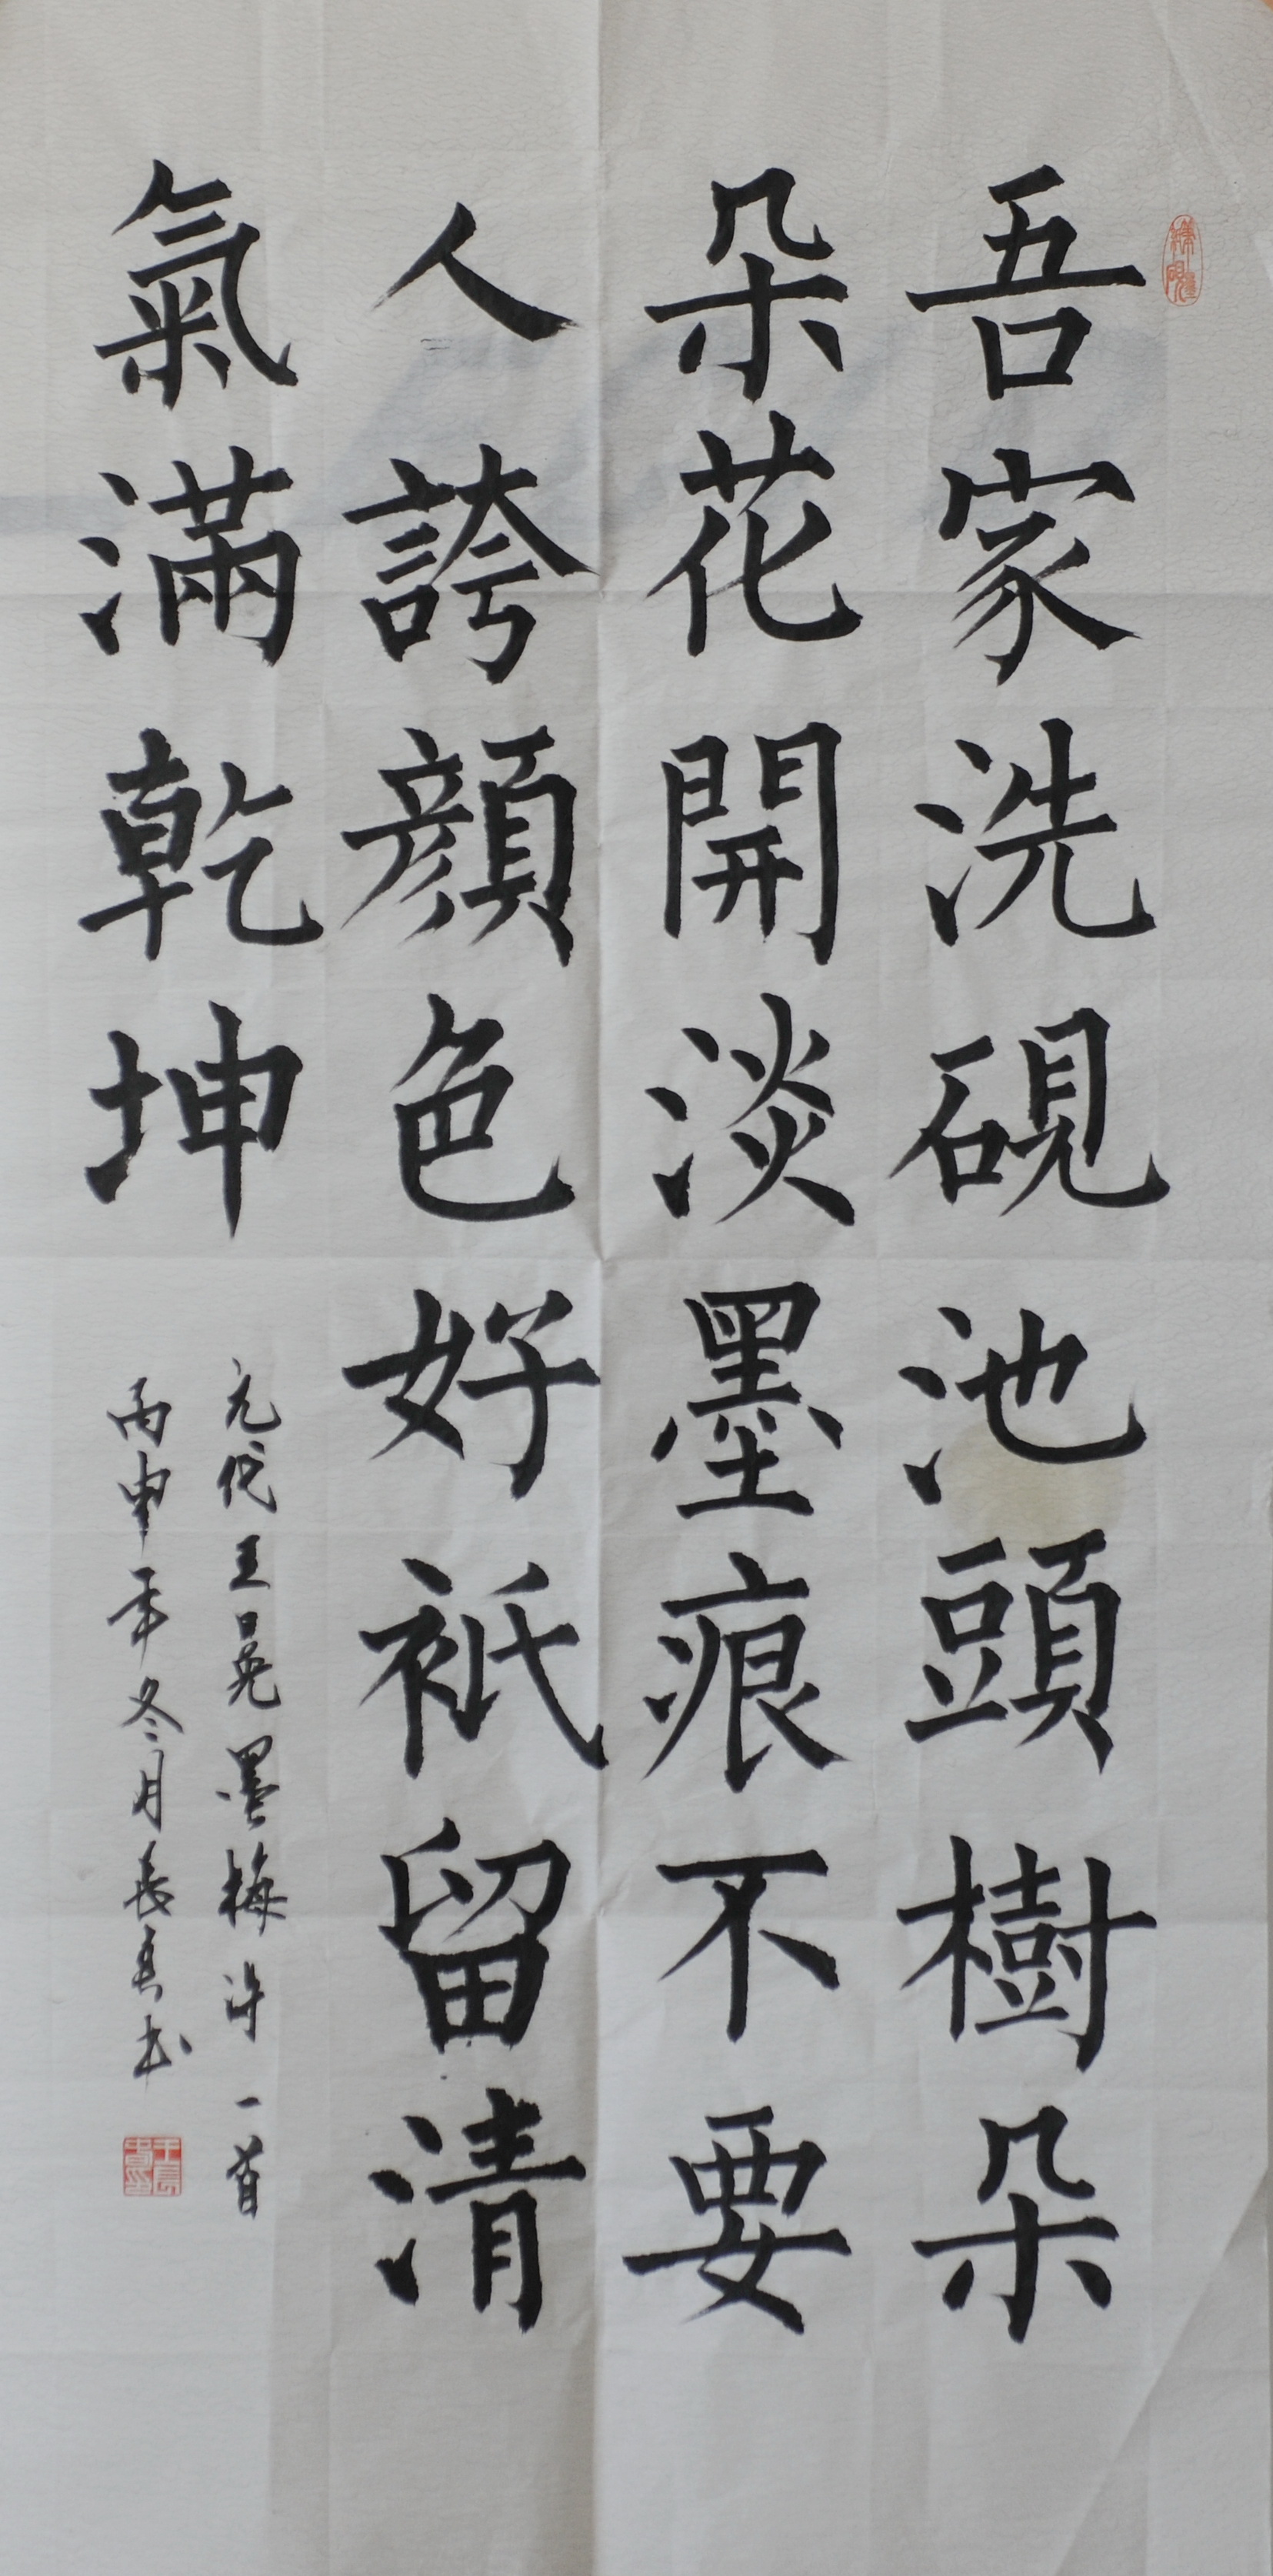 吾家洗硯池頭樹朵
朵花開淡墨痕不要
人誇顏色好衹留清
氣滿乾坤
元代王冕墨梅诗一首
丙申年冬月長貴书